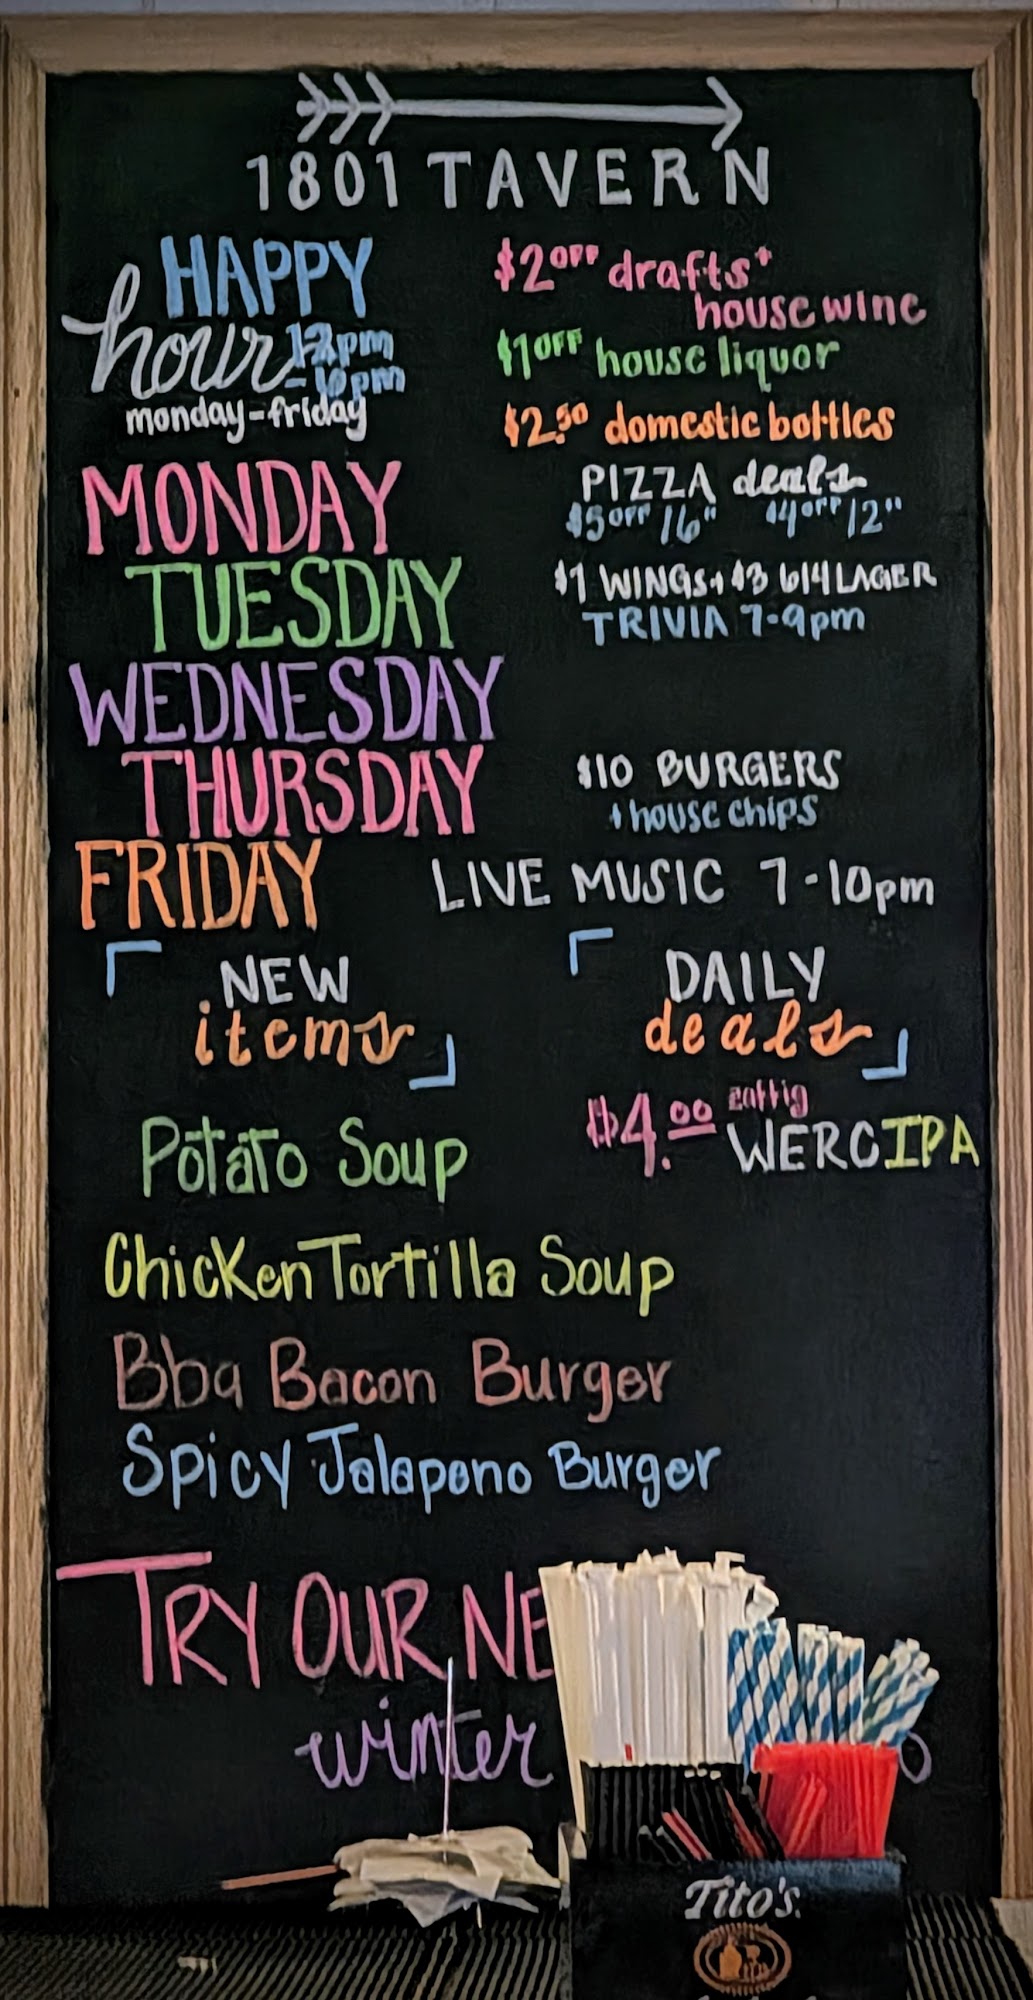 1801 TAVERN
HAPPY
hour 12pm
-10pm
monday-friday
$2 OFF drafts+
house wine
$1 OFF house liquor
$2.50 domestic bottles
MONDAY
PIZZA deals
$5 OFF 16" $4 OFF 12"
TUESDAY
$1 WINGS + $3 614 LAGER
TRIVIA 7-9pm
WEDNESDAY
THURSDAY
$10 BURGERS
+ house chips
FRIDAY
LIVE MUSIC 7-10pm
NEW
items
Potato Soup
Chicken Tortilla Soup
Bbq Bacon Burger
Spicy Jalapeno Burger
DAILY
deals
$4.00 zaftig
WERCIPA
TRY OUR NE
winter
Tito's